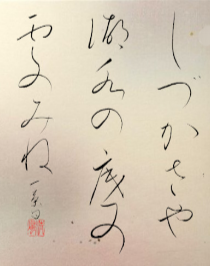 しづかさや
湖水の底の
雲のみね